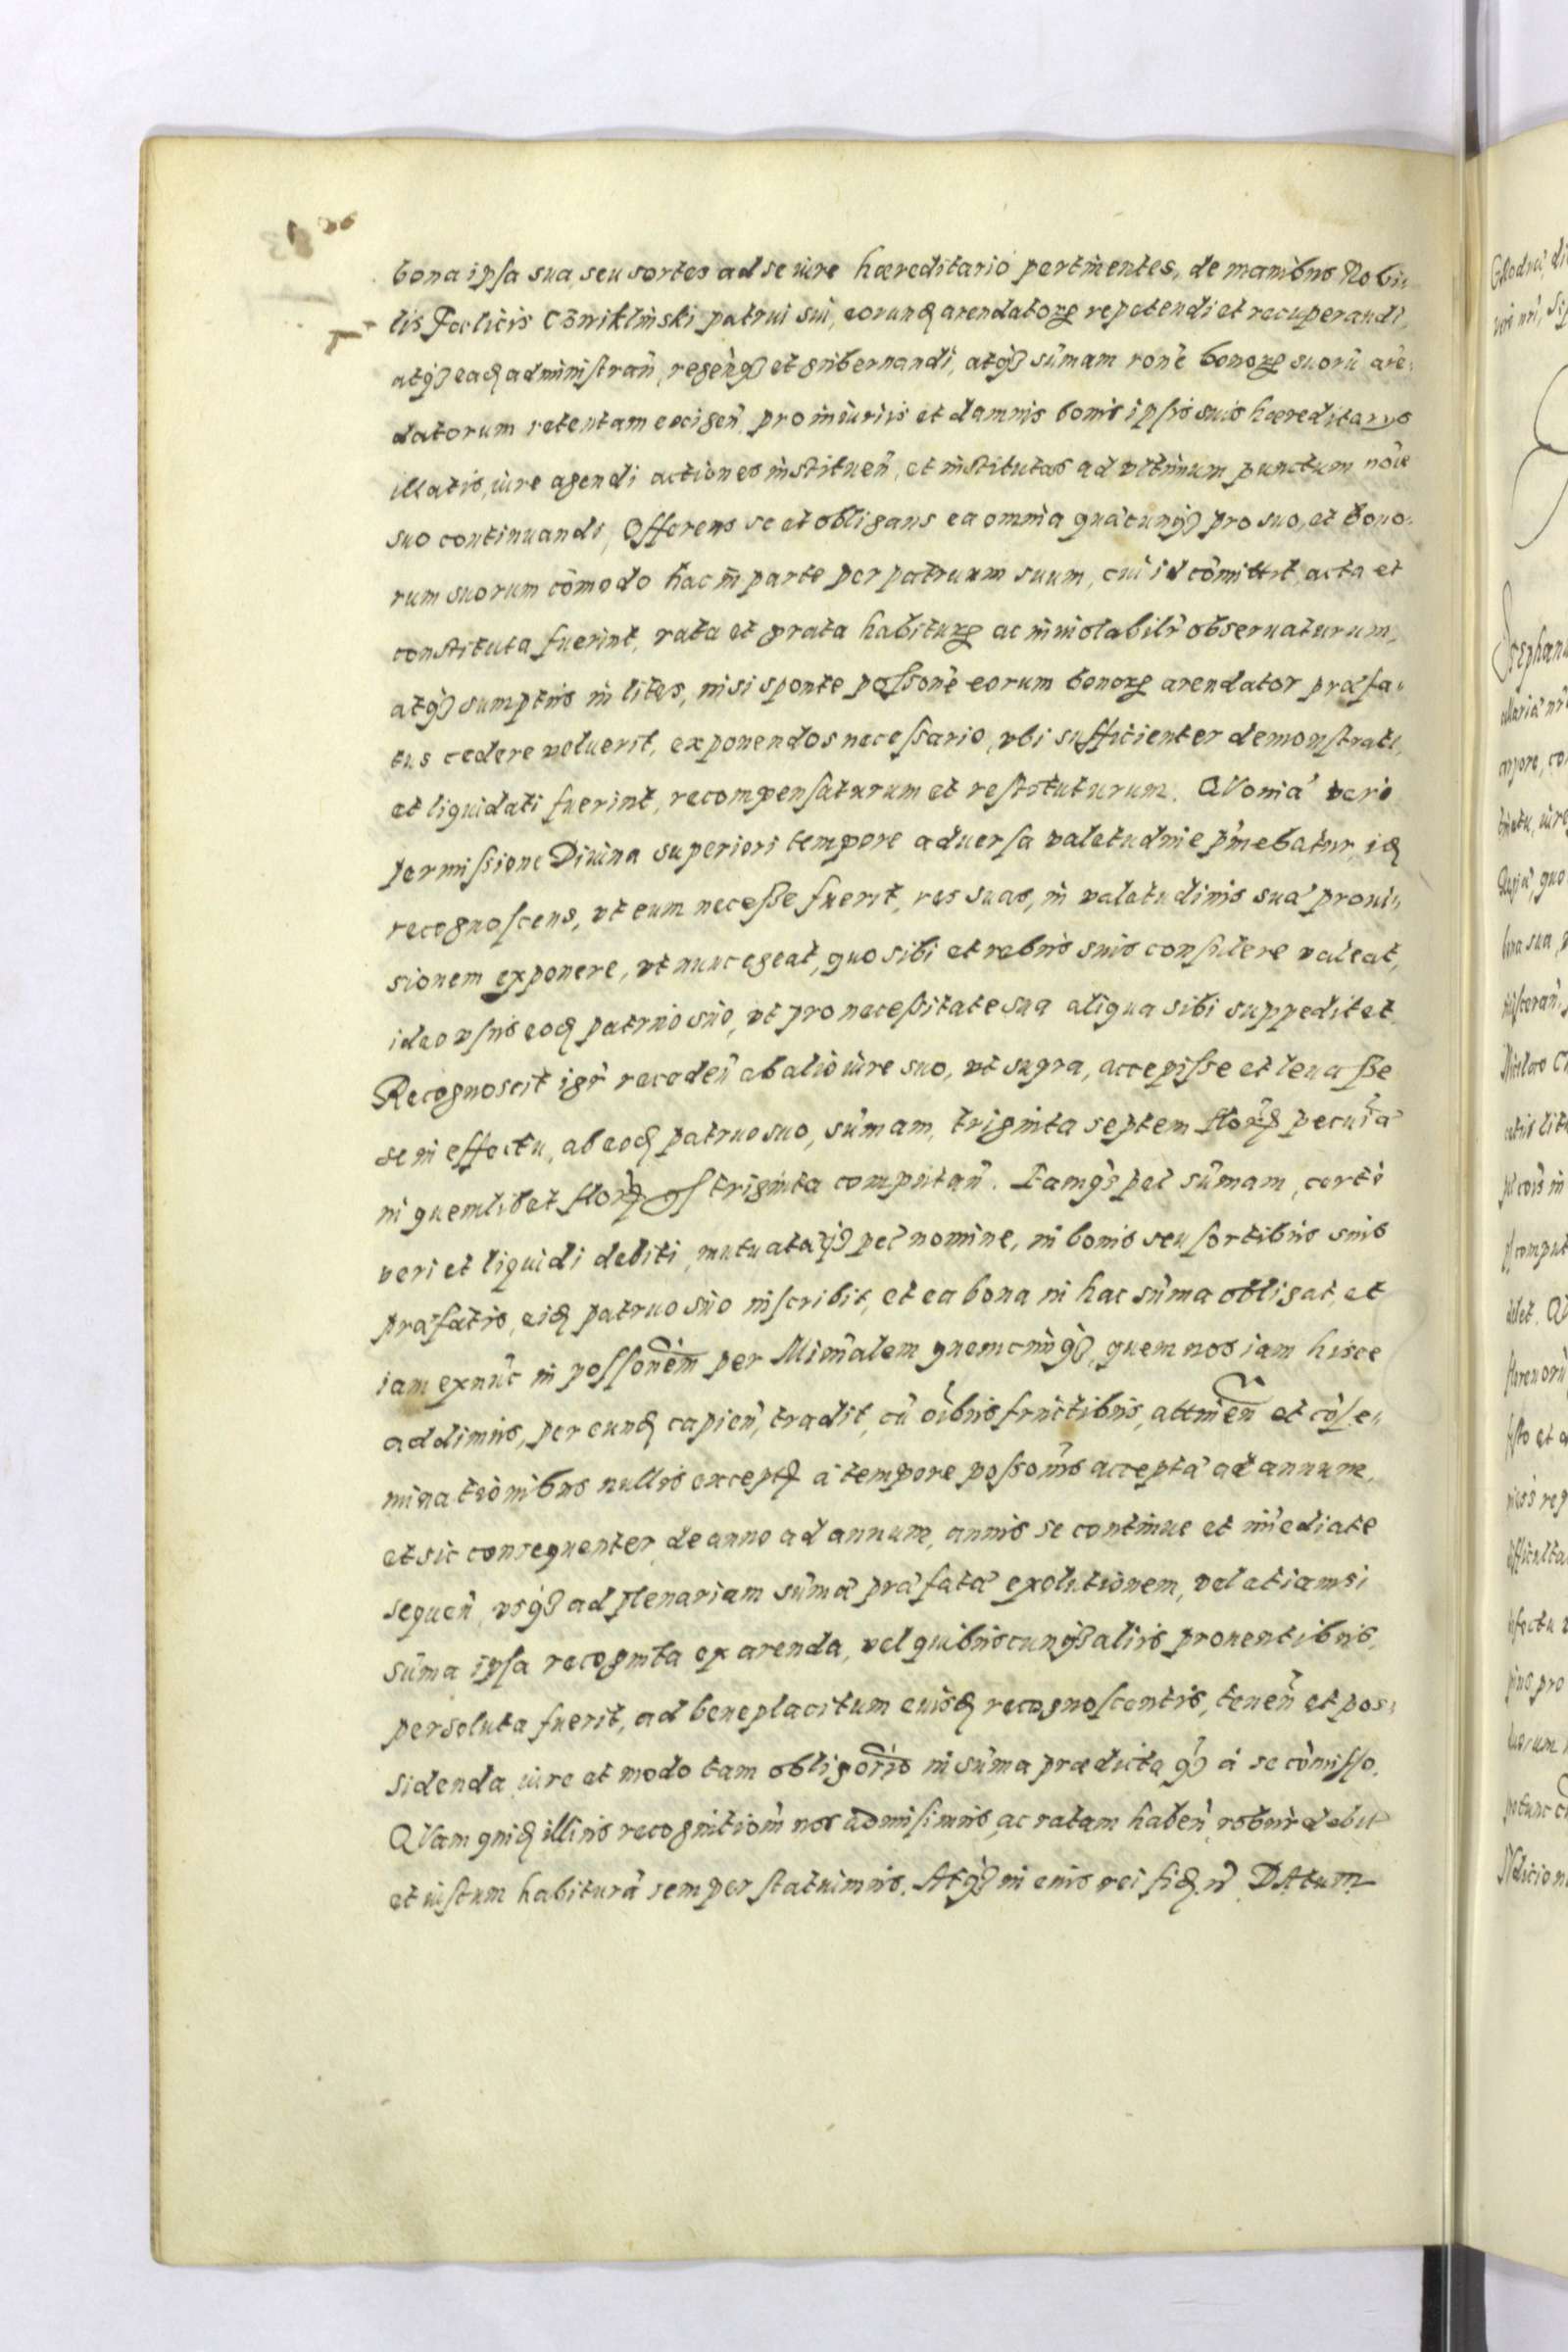 bona ipsa sua, seu sortes ad se iure hæreditario pertinentes, de manibus Nobi-
lis Foelicis Czriklinski patrui sui, eorundꝫ arendatorꝝ repetendi et recuperandi,
atqꝫ eadꝫ administrañ, regeñqꝫ et gubernandi, atqꝫ sũmam rone bonorꝝ suorũ arẽ-
datorum retentam exigeñ. pro iniuriis et damnis bonis ipsis suis hæreditarys
illatis, iure agendi actiones institueñ, et institutas ad vltimum punctum noie
suo continuandi, Offerens se et obligans ea omnia quæcunqꝫ pro suo, et bono-
rum suorum cõmodo hac in parte per patruum suum, cui id cõmittit, acta et
constituta fuerint, rata et grata habiturꝝ ac inuiolabilr obseruaturum,
atqꝫ sumptus in lites, nisi sponte possone eorum bonorꝝ arendator præfa-
tus cedere voluerit, exponendos necessario, vbi sufficienter demonstrati,
et liquidati fuerint, recompensaturum et restituturum. QVonia vero
permissione Diuina superiori tempore aduersa valetudine pmebatur, idꝫ
recognoscens, vt eum necesse fuerit, res suas, in valetudinis suæ proui-
sionem exponere, vt nunc egeat, quo sibi et rebus suis consulere valeat,
ideo vsus eodꝫ patruo suo, vt pro necessitate sua aliqua sibi suppeditet.
Recognoscit igr recedeñ ab alio iure suo, vt supra, accepisse et leuasse
se in effectu, ab eodꝫ patruo suo, sũmam, triginta septem florꝝ pecuniæ
in quemlibet florꝝ gs triginta computañ. Eamqꝫ pec sũmam, certi
veri et liquidi debiti, mutuatæqꝫ pec nomine, in bonis seu sortibus suis
præfatis, eidꝫ patruo suo inscribit, et ea bona in hac sũma obligat, et
iam exnũc in possonem per Ministralem quemcunqꝫ, quem nos iam hisce
addimus, per eundꝫ capieñ, tradit, cũ oibus fructibus, attineñ et cõse-
minationibus nullis exceptꝭ a tempore possonis acceptæ ad annum,
et sic consequenter de anno ad annum, annis se continue et imediate
sequeñ, vsqꝫ ad plenariam sũmæ præfatæ exolutionem, vel etiamsi
sũma ipsa recognita ex arenda, vel quibuscunqꝫ aliis prouentibus,
persoluta fuerit, ad beneplacitum eiusdꝫ recognoscentis, teneñ et pos-
sidenda, iure et modo tam obligorio in sũma prædicta qꝫ à se cõmisso.
QVam quidꝫ illius recognitionẽ nos admisimus, ac ratam habeñ, robur debit
et iustum habiturã semper statuimus. Atqꝫ in eius rei fidꝫ nr̃ DAtum